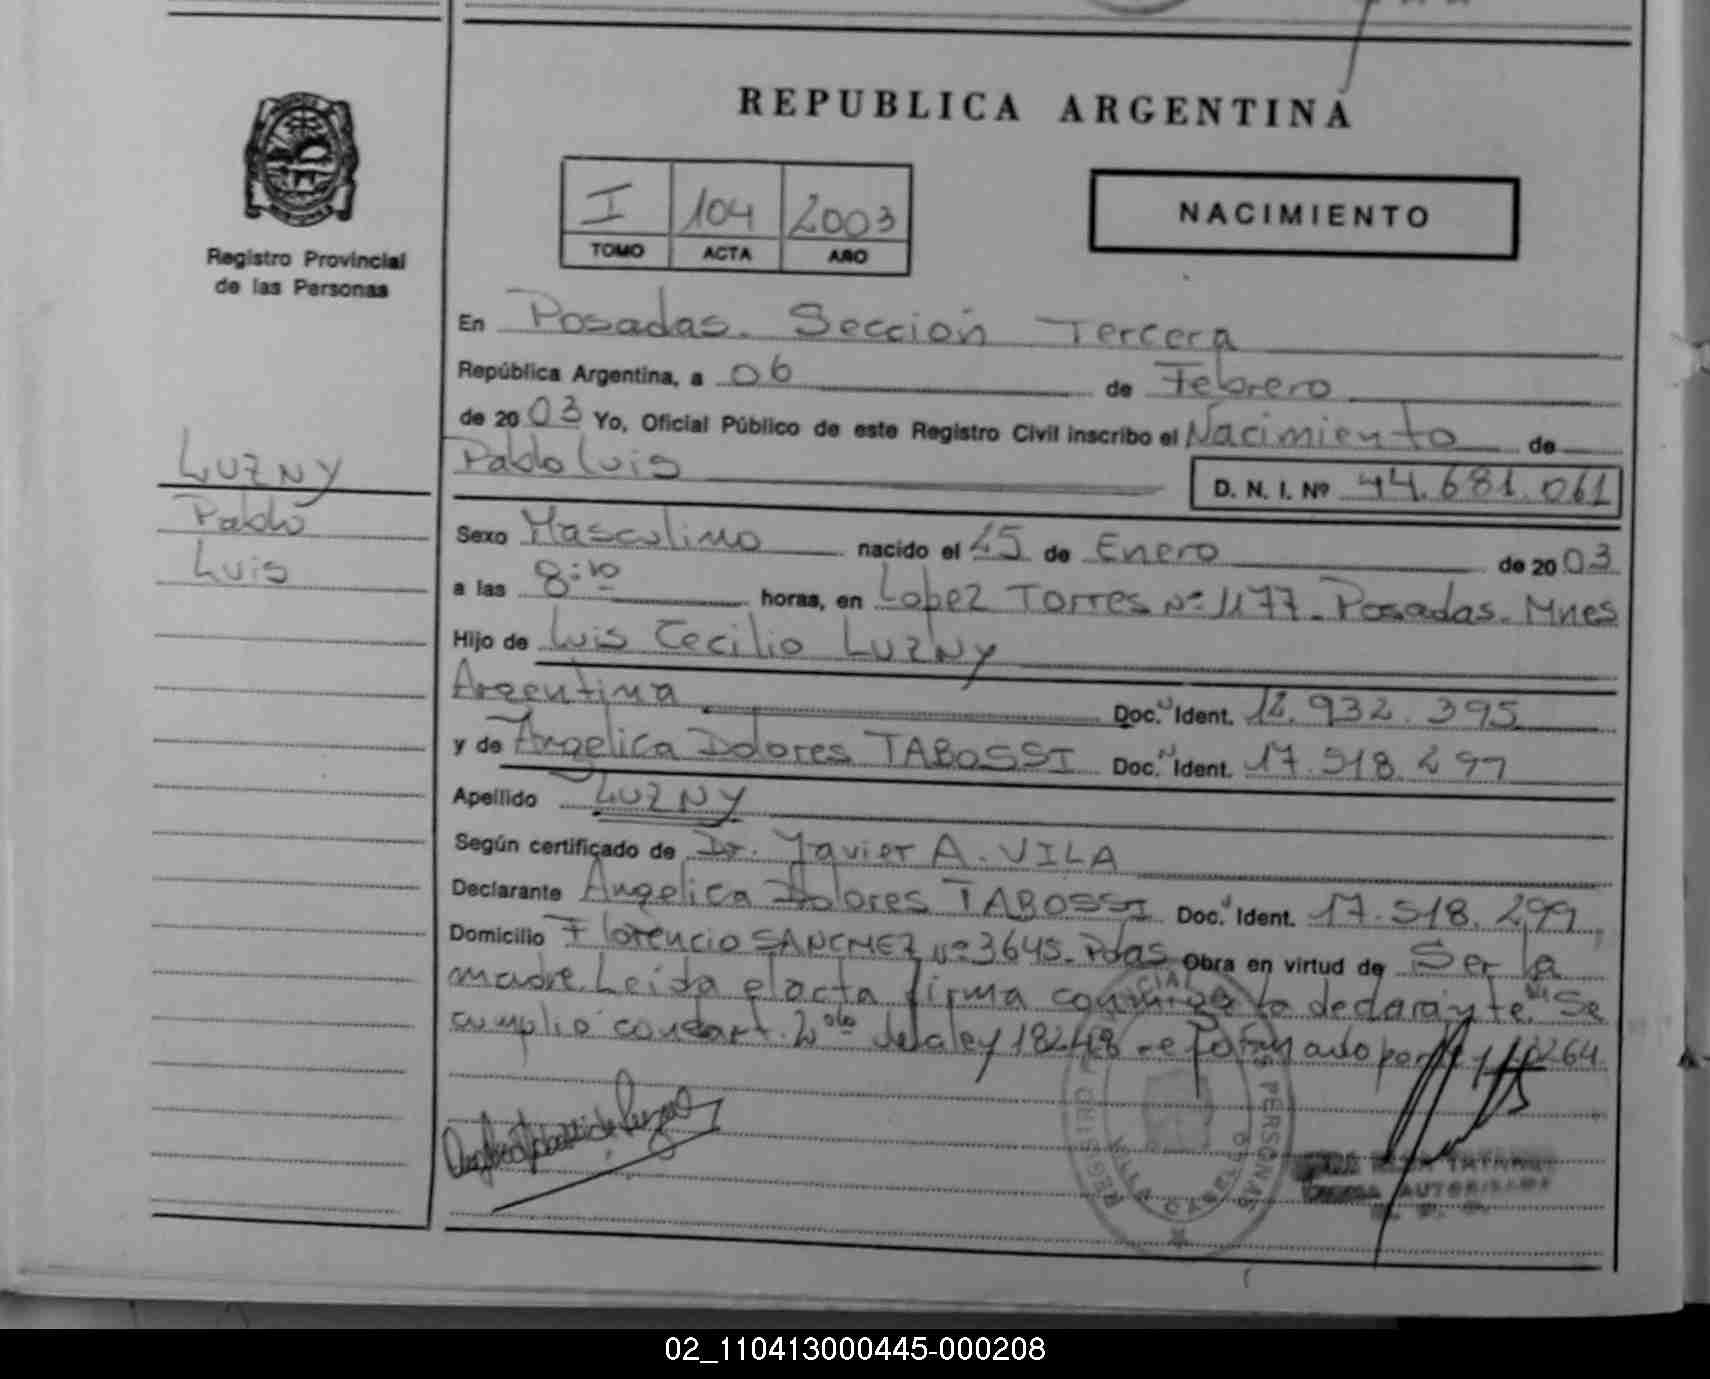 REPUBLICA ARGENTINA
I 104 2003
TOMO ACTA AÑO
NACIMIENTO
Registro Provincial
de las Personas
LUZNY
Pablo
Luis
En Posadas. Sección Tercera
República Argentina, a 06 de Febrero
de 2003 Yo, Oficial Público de este Registro Civil inscribo el Nacimiento de
Pablo Luis D. N. I. Nº 44.681.061
Sexo Masculino nacido el 15 de Enero de 2003
a las 8:10 horas, en Lopez Torres Nº 1177 - Posadas - Mnes
Hijo de Luis Cecilio LUZNY
Argentina Doc. Ident. 12.932.395
y de Angelica Dolores TABOSSI Doc. Ident. 17.518.297
Apellido LUZNY
Según certificado de Dr. Javier A. VILA
Declarante Angelica Dolores TABOSSI Doc. Ident. 17.518.299
Domicilio Florencio SANCHEZ Nº 3645 - Pdas Obra en virtud de Ser la
madre. Leida el acta firma conmigo la declarante. Se
cumplio con el art. 2do de la ley 18248
REGISTRO PERSONAS
VILLA
AUTORIZADA
02_110413000445-000208